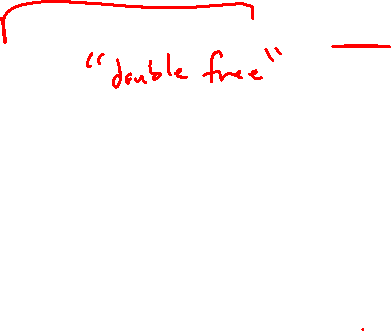 "double free"